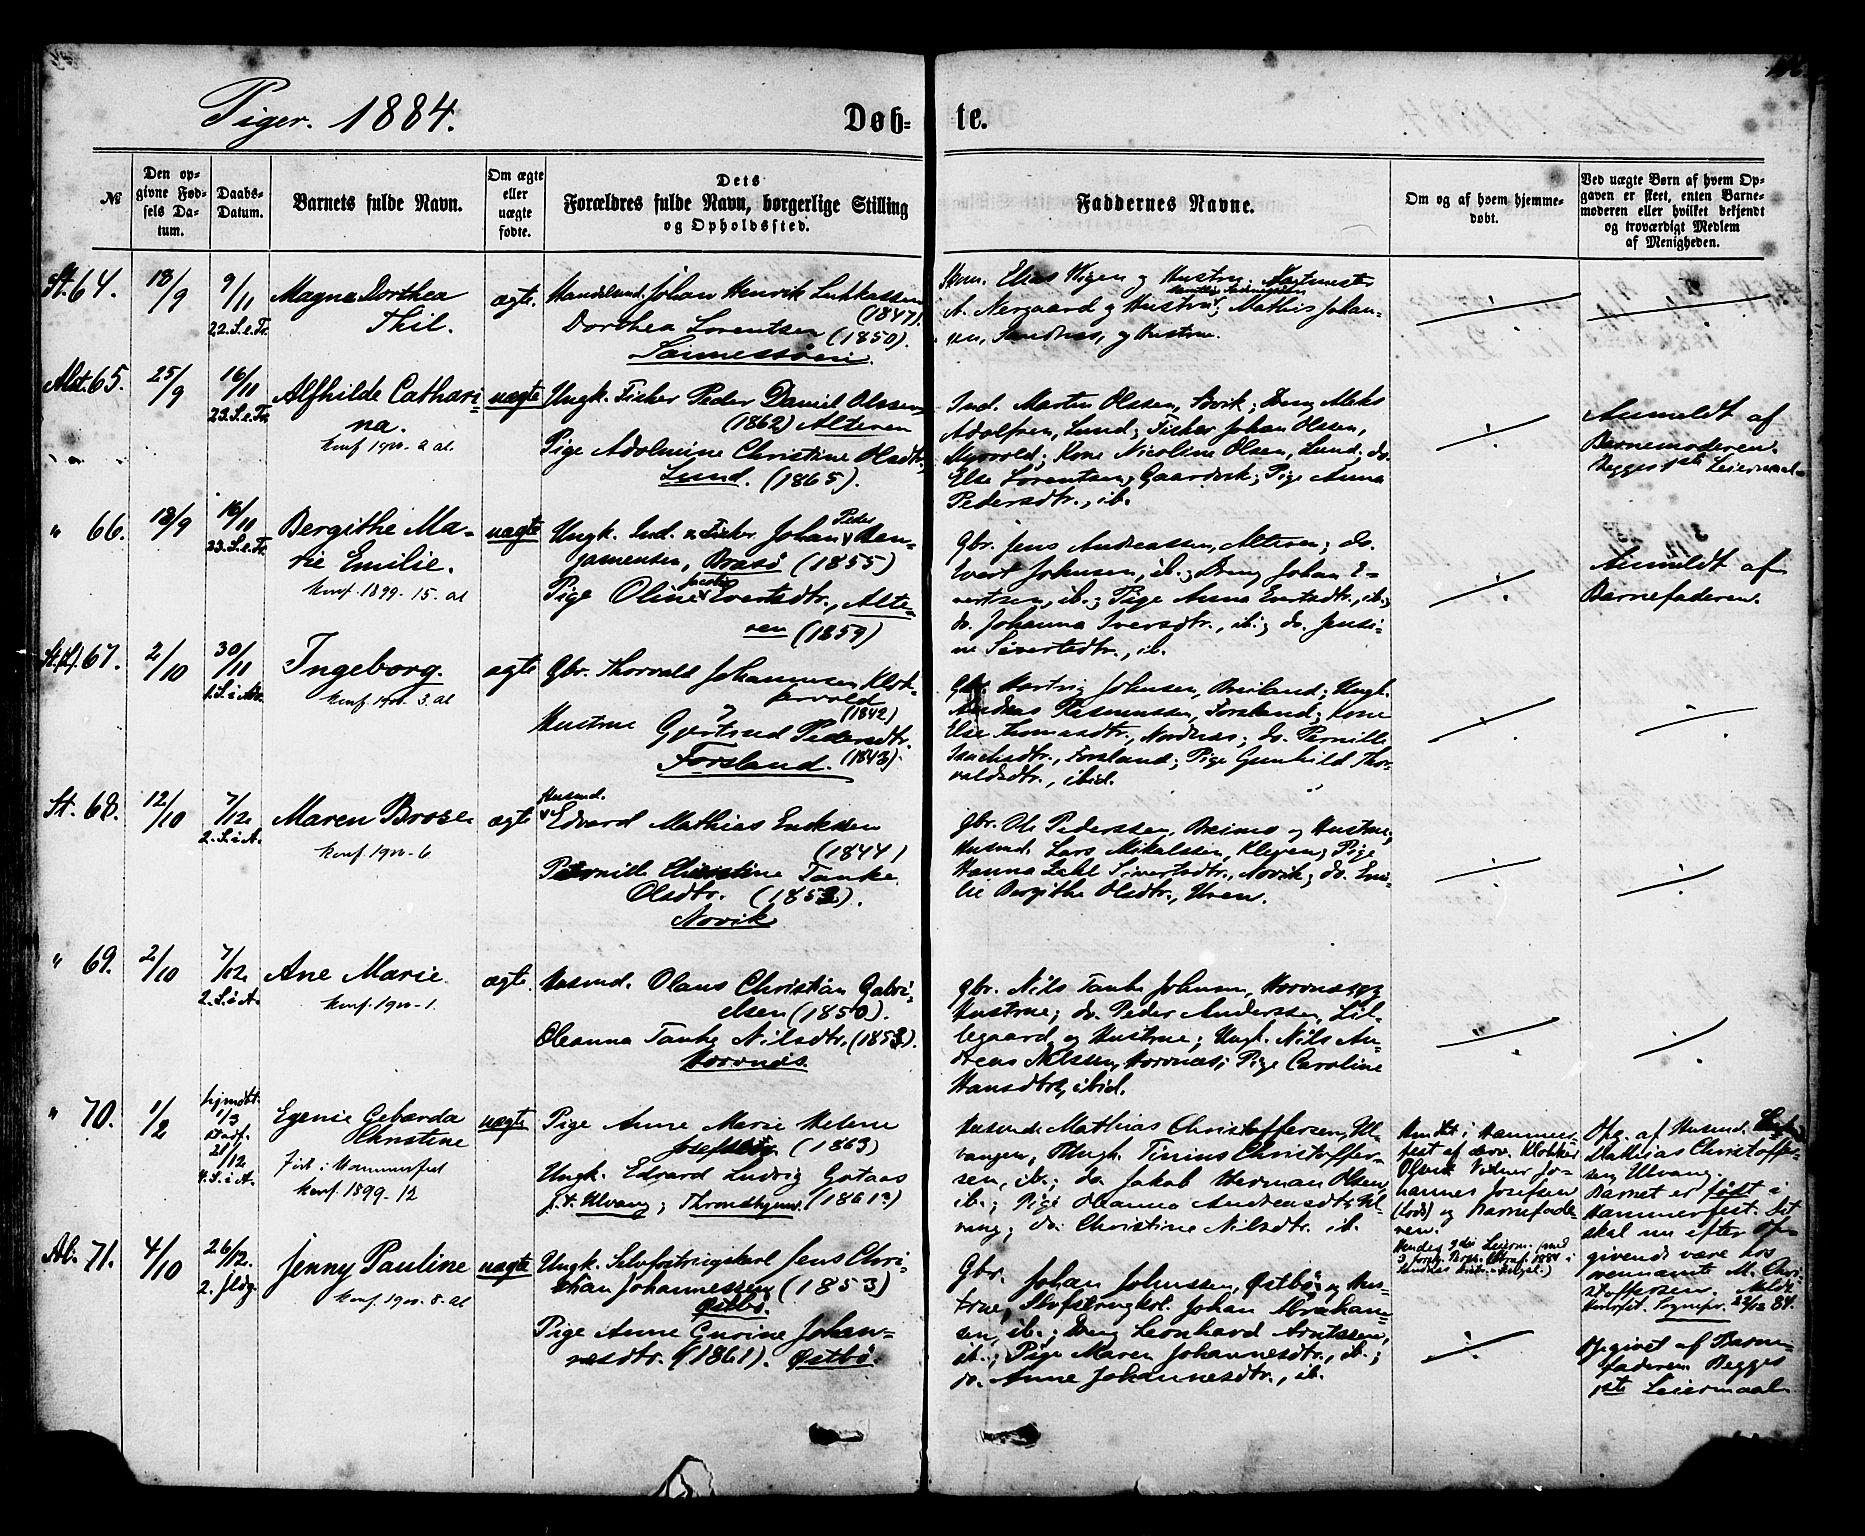 Piger. 1884.
Døb-
te.
№
Den op-
givne Fød-
sels Da-
tum.
Daabs-
Datum.
Barnets fulde Navn.
Om ægte
eller
uægte
fødte.
Dets
Forældres fulde Navn, borgerlige Stilling
og Opholdssted.
Faddernes Navne.
Om og af hvem hjemme-
døbt.
Ved uægte Børn af hvem Op-
gaven er skeet, enten Barne-
moderen eller hvilket bekjendt
og troværdigt Medlem
af Menigheden.
St. 64.
18/9
9/11
22. S. e. Tr.
Magna Dorthea
Thil.
ægte.
Handelsmd. Johan Henrik Lukkassen
(1847).
Dorthea Lorentsen (1850).
A. Nergaard og Hustru; Mathis Johan-
sen, Sandnes, og Hustru.
Alst. 65.
25/9
16/11
23. S. e. Tr.
Alfhilde Cathari-
na.
Konf. 1900. 2 al
uægte
Ungk. Fisker Peder Daniel Olssen
(1862) Alteren
Pige Adolmine Christine Olsdtr.
Lund. (1865).
Ind. Martin Olssen, Bovik; Dreng Meks
Adolfsen, Lund; Fisker Johan Olsen,
Myrvold; Kone Nicoline Olsen, Lund; do.
Else Lorentsen, Gaardsvk; Pige Anna
Pedersdtr., ib.
Anmeldt af
Barnemoderen.
Begges 1ste Leiermaal.
" 66.
18/9
16/11
23. S. e. Tr.
Bergithe Ma-
rie Emilie.
Konf. 1899. 15. al
uægte
Ungk. Ind. & Fisker Johan Peder Ben-
jamensen, Brasø (1855)
Pige Oline Evertsdtr., Alte-
ren (1859)
Gbr. Jens Andreassen, Alteren; do.
Evert Johnsen, ib.; Dreng Johan E-
vertsen, ib.; Pige Anna Evertsdtr., ib.;
do. Johanna Iversdtr., ib.; do. Jensi-
ne Sivertsdtr., ib.
Anmeldt af
Barnefaderen.
67.
2/10
30/11
1. S. i Adv.
Ingeborg.
Konf. 1900. 3. al
ægte
Gbr. Thorvald Johannesen Klok-
kervold
(1842)
Hustru Gjertrud Pedersdtr.
Forsland. (1843).
Gbr. Hartvig Johnsen, Breiland; Ungk.
Andreas Rasmussen, Forsland; Kone
Else Thomasdtr., Nordnes; do. Pernille
Isachsdtr., Forsland; Pige Gunhild Thor-
valdsdtr., ibid.
St. 68.
12/10
7/12
2. S. i A.
Maren Brose.
Konf. 1900. 6
ægte
Husmd.
Edvard Mathias Eriksen
(1844)
Petronille Christine Tanke
Olsdtr. (1852).
Novik
Gbr. Ole Pederssen, Breimo og Hustru;
Husmd. Lars Mikalssen, Kleven; Pige
Hanna Zahl Sivertsdtr., Novik; do. Emi-
lie Bergithe Olsdtr., Uren.
" 69.
2/10
7/12
2. S. i A.
Ane Marie
Konf. 1900. 1.
ægte
Husmd. Olaus Christian Gabri-
elsen (1850).
Oleanna Tanke Nilsdtr. (1853).
Hovnæs.
Gbr. Nils Tanke Johnsen, Hovnæs og
Hustru; do. Peder Anderssen, Lil-
legaard og Hustru; Ungk. Nils An-
dreas Nilssen, Hovnæs; Pige Caroline
Hansdtr., ibid.
" 70.
1/2
hjmdbt.
1/3
stadf.
21/12
4. S. i A.
Egenie Gebarda
Christine
Født i Hammerfest
Konf. 1899. 12
uægte
Pige Anne Marie Helene
Josefsdtr. (1863)
Ungk. Edvard Ludvig Gotaas
f. t. Ulvang; Throndhjem. (1861?)
Husmd. Mathias Christoffersen, Ul-
vangen; Ungk. Tinius Christoffer-
sen, ib.; do. Jakob Herman Olsen
ib.; Pige Oleanna Andreasdtr, Ul-
vang; do. Christine Nilsdtr. ib.
Hmdbt. i Hammer-
fest af Klokker
Olsen Vidner Jo-
hannes Josefsen
og Barnefade-
ren.
Opg. af Husmd.
Mathias Christoffer-
sen Ulvang.
Barnet er født i
Hammerfest. Det
skal nu efter Op-
givende være hos
vennævnte M. Chri-
stoffersen.
Ab. 71.
4/10
26/12.
2. Jldg.
Jenny Pauline
Konf. 1900. 8. al
uægte
Ungk. Selvfostringskarl Jens Chri-
stian Johannessen (1853)
Østbø.
Pige Anne Gurine Johan-
nesdtr. (1861). Østbø.
Gbr. Johan Johnssen, Østbø og Hus-
tru; Slvfstrngkrl. Johan Abraham-
sen, ib.; Dreng Leonhard Arntssen,
ib.; Pige Maren Johannesdtr., ib.;
do. Anne Johannesdtr., ib.
Opgivet af Barne-
faderen Begges
1ste Leiermaal.